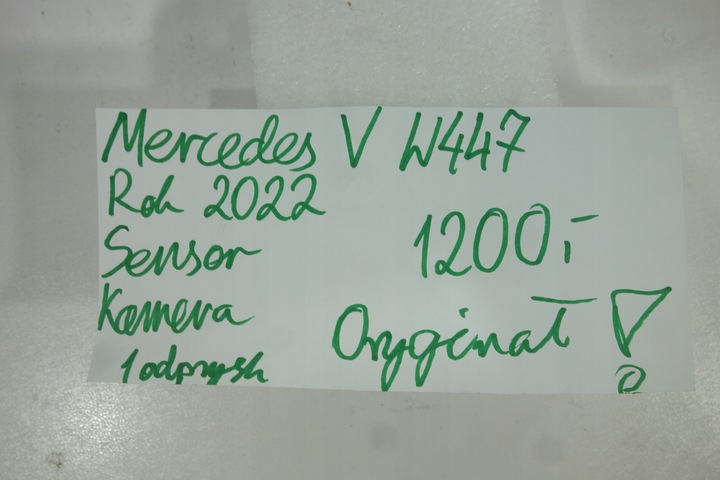 Mercedes V W447
Rok 2022
1200,-
Sensor
Kamera
Oryginał !
1 odprysk